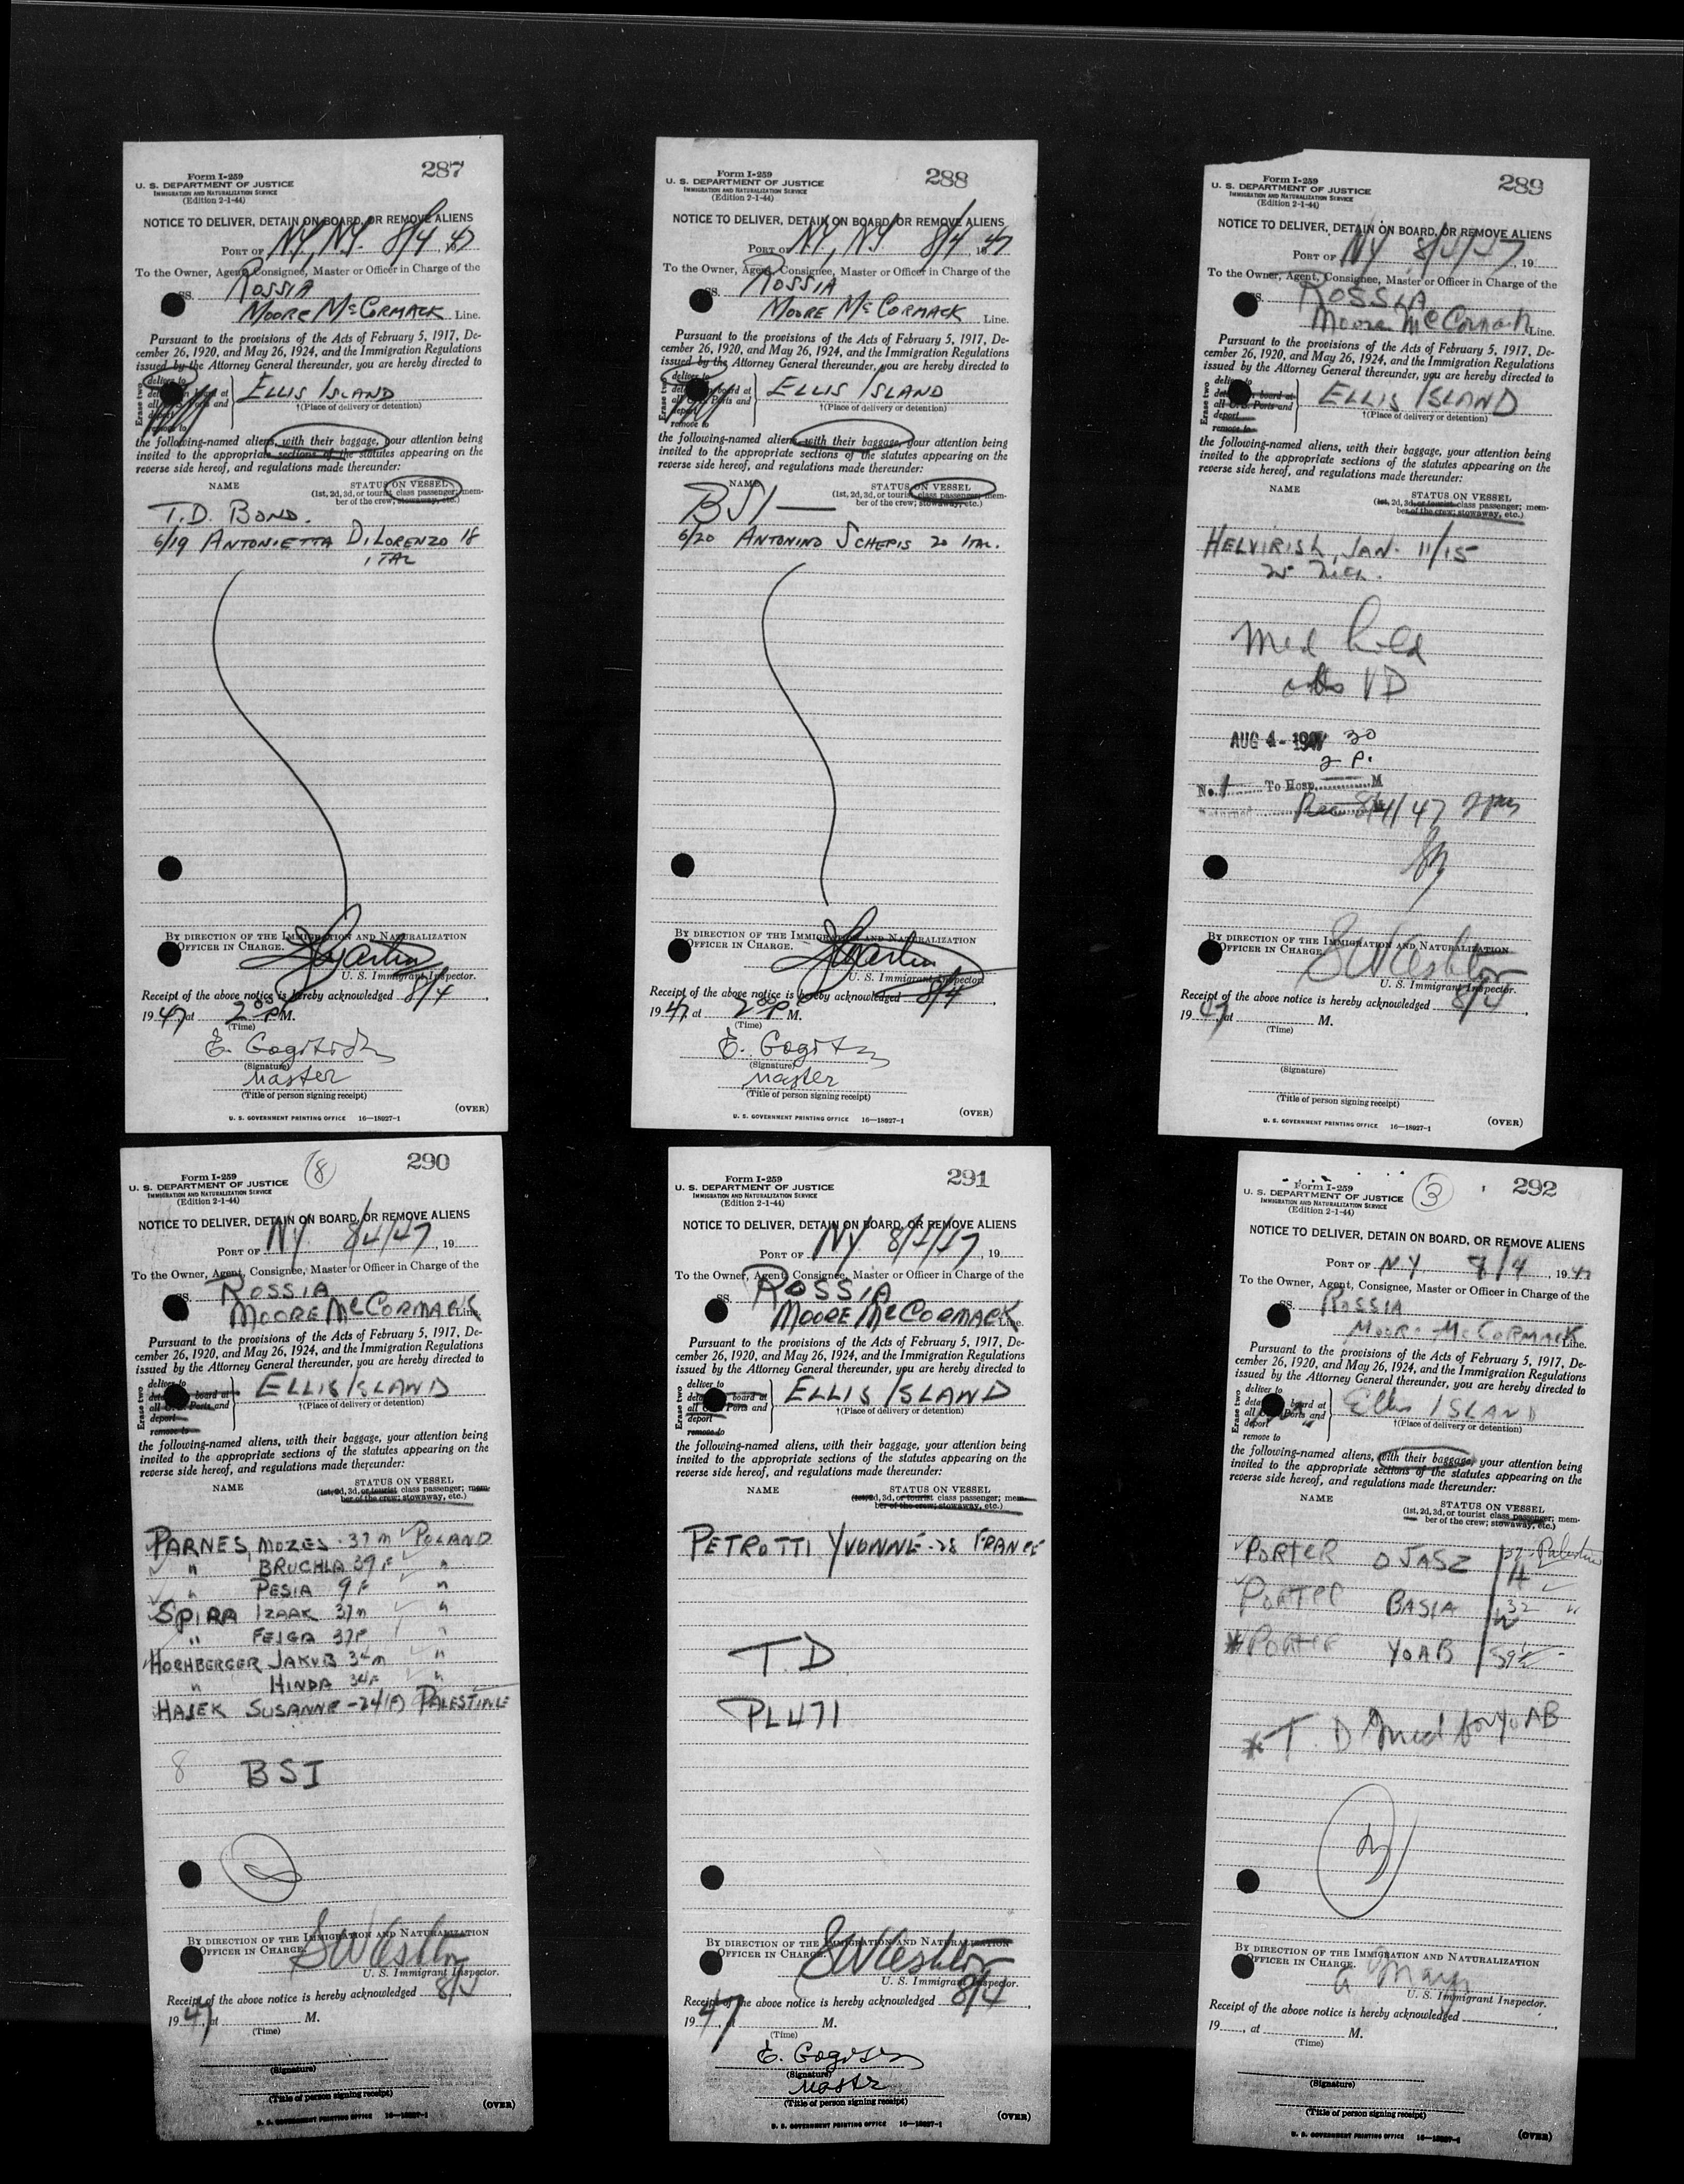 287
Form I-259
U. S. DEPARTMENT OF JUSTICE
IMMIGRATION AND NATURALIZATION SERVICE
(Edition 2-1-44)
NOTICE TO DELIVER, DETAIN ON BOARD, OR REMOVE ALIENS
PORT OF N.Y., N.Y. 8/4 1947
To the Owner, Agent, Consignee, Master or Officer in Charge of the
SS. ROSSIA
MOORE McCORMACK Line.
Pursuant to the provisions of the Acts of February 5, 1917, De-
cember 26, 1920, and May 26, 1924, and the Immigration Regulations
issued by the Attorney General thereunder, you are hereby directed to
Erase two
deliver to
board at
all Ports and
remove to
ELLIS ISLAND
†(Place of delivery or detention)
the following-named aliens, with their baggage, your attention being
invited to the appropriate sections of the statutes appearing on the
reverse side hereof, and regulations made thereunder:
NAME STATUS ON VESSEL
(1st, 2d, 3d, or tourist class passenger; mem-
ber of the crew; stowaway, etc.)
T.D. BOND.
6/19 ANTONIETTA DiLORENZO 18
ITAL
BY DIRECTION OF THE IMMIGRATION AND NATURALIZATION
OFFICER IN CHARGE.
U. S. Immigrant Inspector.
Receipt of the above notice is hereby acknowledged 8/4,
1947, at 2 00 P M.
(Time)
E.
(Signature)
Master
(Title of person signing receipt)
(OVER)
U. S. GOVERNMENT PRINTING OFFICE 16—18927-1
288
Form I-259
U. S. DEPARTMENT OF JUSTICE
IMMIGRATION AND NATURALIZATION SERVICE
(Edition 2-1-44)
NOTICE TO DELIVER, DETAIN ON BOARD, OR REMOVE ALIENS
PORT OF N.Y., N.Y. 8/4 1947
To the Owner, Agent, Consignee, Master or Officer in Charge of the
SS. ROSSIA
MOORE McCORMACK Line.
Pursuant to the provisions of the Acts of February 5, 1917, De-
cember 26, 1920, and May 26, 1924, and the Immigration Regulations
issued by the Attorney General thereunder, you are hereby directed to
Erase two
deliver to
board at
Ports and
deport
remove to
ELLIS ISLAND
†(Place of delivery or detention)
the following-named aliens, with their baggage, your attention being
invited to the appropriate sections of the statutes appearing on the
reverse side hereof, and regulations made thereunder:
NAME STATUS ON VESSEL
(1st, 2d, 3d, or tourist class passenger; mem-
ber of the crew; stowaway, etc.)
BSI —
6/20 ANTONINO SCHEPIS 20 ITAL.
BY DIRECTION OF THE IMMIGRATION AND NATURALIZATION
OFFICER IN CHARGE.
U. S. Immigrant Inspector.
Receipt of the above notice is hereby acknowledged 8/4,
1947, at 2 00 P M.
(Time)
E.
(Signature)
Master
(Title of person signing receipt)
(OVER)
U. S. GOVERNMENT PRINTING OFFICE 16—18927-1
289
Form I-259
U. S. DEPARTMENT OF JUSTICE
IMMIGRATION AND NATURALIZATION SERVICE
(Edition 2-1-44)
NOTICE TO DELIVER, DETAIN ON BOARD, OR REMOVE ALIENS
PORT OF NY 8/4/47, 19
To the Owner, Agent, Consignee, Master or Officer in Charge of the
SS. ROSSIA
Moore McCormack Line.
Pursuant to the provisions of the Acts of February 5, 1917, De-
cember 26, 1920, and May 26, 1924, and the Immigration Regulations
issued by the Attorney General thereunder, you are hereby directed to
Erase two
deliver to
board at
all Ports and
deport
remove to
ELLIS ISLAND
†(Place of delivery or detention)
the following-named aliens, with their baggage, your attention being
invited to the appropriate sections of the statutes appearing on the
reverse side hereof, and regulations made thereunder:
NAME
STATUS ON VESSEL
(1st, 2d, 3d, or tourist class passenger; mem-
ber of the crew; stowaway, etc.)
HELVIRISH, JAN. 11/15
Med hold
VD
AUG 4 - 1947 30
2 P.
No. 1 To Hosp. M
Rec 8/4/47 2pm
BY DIRECTION OF THE IMMIGRATION AND NATURALIZATION
OFFICER IN CHARGE.
U. S. Immigrant Inspector.
Receipt of the above notice is hereby acknowledged 8/4,
1947, at M.
(Time)
(Signature)
(Title of person signing receipt)
U. S. GOVERNMENT PRINTING OFFICE 16—18927-1 (OVER)
290
8
Form I-259
U. S. DEPARTMENT OF JUSTICE
IMMIGRATION AND NATURALIZATION SERVICE
(Edition 2-1-44)
NOTICE TO DELIVER, DETAIN ON BOARD, OR REMOVE ALIENS
PORT OF NY. 8/4/47, 19
To the Owner, Agent, Consignee, Master or Officer in Charge of the
SS. ROSSIA
MOORE McCORMACK Line.
Pursuant to the provisions of the Acts of February 5, 1917, De-
cember 26, 1920, and May 26, 1924, and the Immigration Regulations
issued by the Attorney General thereunder, you are hereby directed to
Erase two
deliver to
board at
all Ports and
deport
remove to
ELLIS ISLAND
†(Place of delivery or detention)
the following-named aliens, with their baggage, your attention being
invited to the appropriate sections of the statutes appearing on the
reverse side hereof, and regulations made thereunder:
NAME STATUS ON VESSEL
(1st, 2d, 3d, or tourist class passenger; mem-
ber of the crew; stowaway, etc.)
PARNES, MOZES - 37 m POLAND
" BRUCHLA 39 F "
" PESIA 9 F "
SPIRA IZAAK 37 m "
" FEIGA 37 F "
HOCHBERGER JAKUB 34 m "
" HINDA 34 F "
HAJEK SUSANNE - 24 (F) PALESTINE
8 BSI
BY DIRECTION OF THE IMMIGRATION AND NATURALIZATION
OFFICER IN CHARGE.
U. S. Immigrant Inspector.
Receipt of the above notice is hereby acknowledged 8/4,
1947, at M.
(Time)
(Signature)
(Title of person signing receipt)
(OVER)
U. S. GOVERNMENT PRINTING OFFICE 16—18927-1
291
Form I-259
U. S. DEPARTMENT OF JUSTICE
IMMIGRATION AND NATURALIZATION SERVICE
(Edition 2-1-44)
NOTICE TO DELIVER, DETAIN ON BOARD, OR REMOVE ALIENS
PORT OF NY 8/4/47, 19
To the Owner, Agent, Consignee, Master or Officer in Charge of the
SS. ROSSIA
MOORE McCORMACK Line.
Pursuant to the provisions of the Acts of February 5, 1917, De-
cember 26, 1920, and May 26, 1924, and the Immigration Regulations
issued by the Attorney General thereunder, you are hereby directed to
Erase two
deliver to
board at
all Ports and
deport
remove to
ELLIS ISLAND
†(Place of delivery or detention)
the following-named aliens, with their baggage, your attention being
invited to the appropriate sections of the statutes appearing on the
reverse side hereof, and regulations made thereunder:
NAME STATUS ON VESSEL
(1st, 2d, 3d, or tourist class passenger; mem-
ber of the crew; stowaway, etc.)
PETROTTI YVONNE - 28 FRANCE
T.D
PL471
BY DIRECTION OF THE IMMIGRATION AND NATURALIZATION
OFFICER IN CHARGE.
U. S. Immigrant Inspector.
Receipt of the above notice is hereby acknowledged 8/4,
1947, at M.
(Time)
E.
(Signature)
Master
(Title of person signing receipt)
(OVER)
U. S. GOVERNMENT PRINTING OFFICE 16—18927-1
292
3
Form I-259
U. S. DEPARTMENT OF JUSTICE
IMMIGRATION AND NATURALIZATION SERVICE
(Edition 2-1-44)
NOTICE TO DELIVER, DETAIN ON BOARD, OR REMOVE ALIENS
PORT OF NY 8/4, 1947
To the Owner, Agent, Consignee, Master or Officer in Charge of the
SS. ROSSIA
MOORE McCORMACK Line.
Pursuant to the provisions of the Acts of February 5, 1917, De-
cember 26, 1920, and May 26, 1924, and the Immigration Regulations
issued by the Attorney General thereunder, you are hereby directed to
Erase two
deliver to
board at
all Ports and
deport
remove to
Ellis ISLAND
†(Place of delivery or detention)
the following-named aliens, with their baggage, your attention being
invited to the appropriate sections of the statutes appearing on the
reverse side hereof, and regulations made thereunder:
NAME
STATUS ON VESSEL
(1st, 2d, 3d, or tourist class passenger; mem-
ber of the crew; stowaway, etc.)
PORTER OJASZ 37 - Palestine
PORTER BASIA 32 "
* PORTER YOAB
* T. D. Med for YOAB
BY DIRECTION OF THE IMMIGRATION AND NATURALIZATION
OFFICER IN CHARGE.
U. S. Immigrant Inspector.
Receipt of the above notice is hereby acknowledged ,
19 , at M.
(Time)
(Signature)
(Title of person signing receipt)
U. S. GOVERNMENT PRINTING OFFICE 16—18927-1 (OVER)